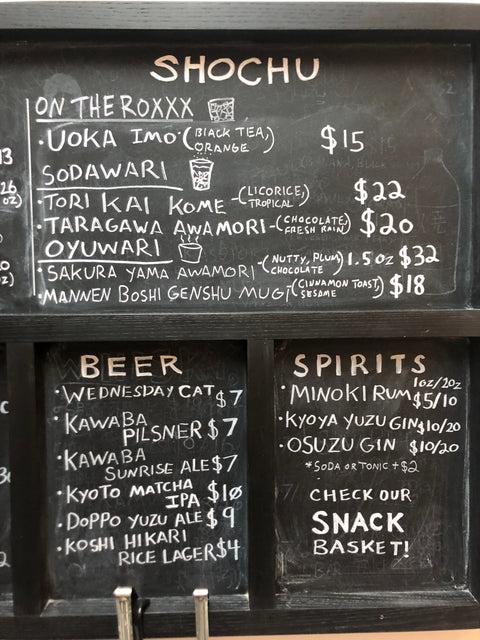 SHOCHU
ON THE ROXXX
·UOKA IMO·(BLACK TEA, ORANGE) $15
SODAWARI
·TORI KAI KOME -(LICORICE, TROPICAL) $22
·TARAGAWA AWAMORI -(CHOCOLATE, FRESH RAIN) $20
OYUWARI
·SAKURA YAMA AWAMORI -(NUTTY, PLUM, CHOCOLATE) 1.5 oz $32
·MANNEN BOSHI GENSHU MUGI (CINNAMON TOAST, SESAME) $18
BEER
·WEDNESDAY CAT $7
·KAWABA
PILSNER $7
·KAWABA
SUNRISE ALE $7
·KYOTO MATCHA
IPA $10
·DOPPO YUZU ALE $9
·KOSHI HIKARI
RICE LAGER $4
SPIRITS
1oz/2oz
·MINOKI RUM $5/10
·KYOYA YUZU GIN $10/20
·OSUZU GIN $10/20
*SODA OR TONIC +$2
CHECK OUR
SNACK
BASKET!